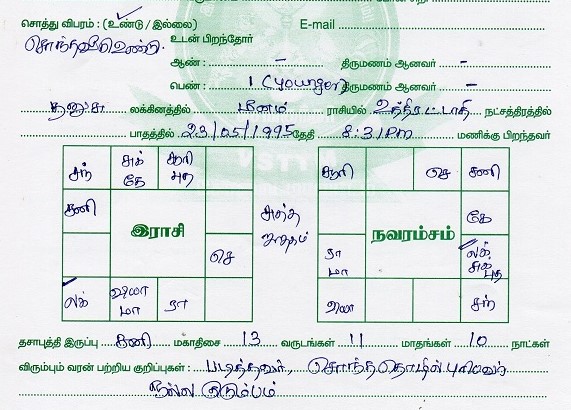 சொத்து விபரம் : (உண்டு / இல்லை) E-mail
சொந்தவீடு உண்டு. உடன் பிறந்தோர்
ஆண் : - திருமணம் ஆனவர் -
பெண் : 1 (younger) திருமணம் ஆனவர் -
தனுசு லக்கினத்தில் மீனம் ராசியில் உத்திரட்டாதி நட்சத்திரத்தில்
பாதத்தில் 23/05/1995 தேதி 8:31 PM மணிக்கு பிறந்தவர்
சந் சுக் கே சூரி புத
சனி இராசி செ
லக் வியா மா ரா
சுத்த ஜாதகம்
சூரி செ சனி
கே
ரா மா நவரம்சம் லக் சுக் புத
வியா சந்
தசாபுத்தி இருப்பு சனி மகாதிசை 13 வருடங்கள் 11 மாதங்கள் 10 நாட்கள்
விரும்பும் வரன் பற்றிய குறிப்புகள் : படித்தவர், சொந்ததொழில் புரிபவர்
நல்ல குடும்பம்